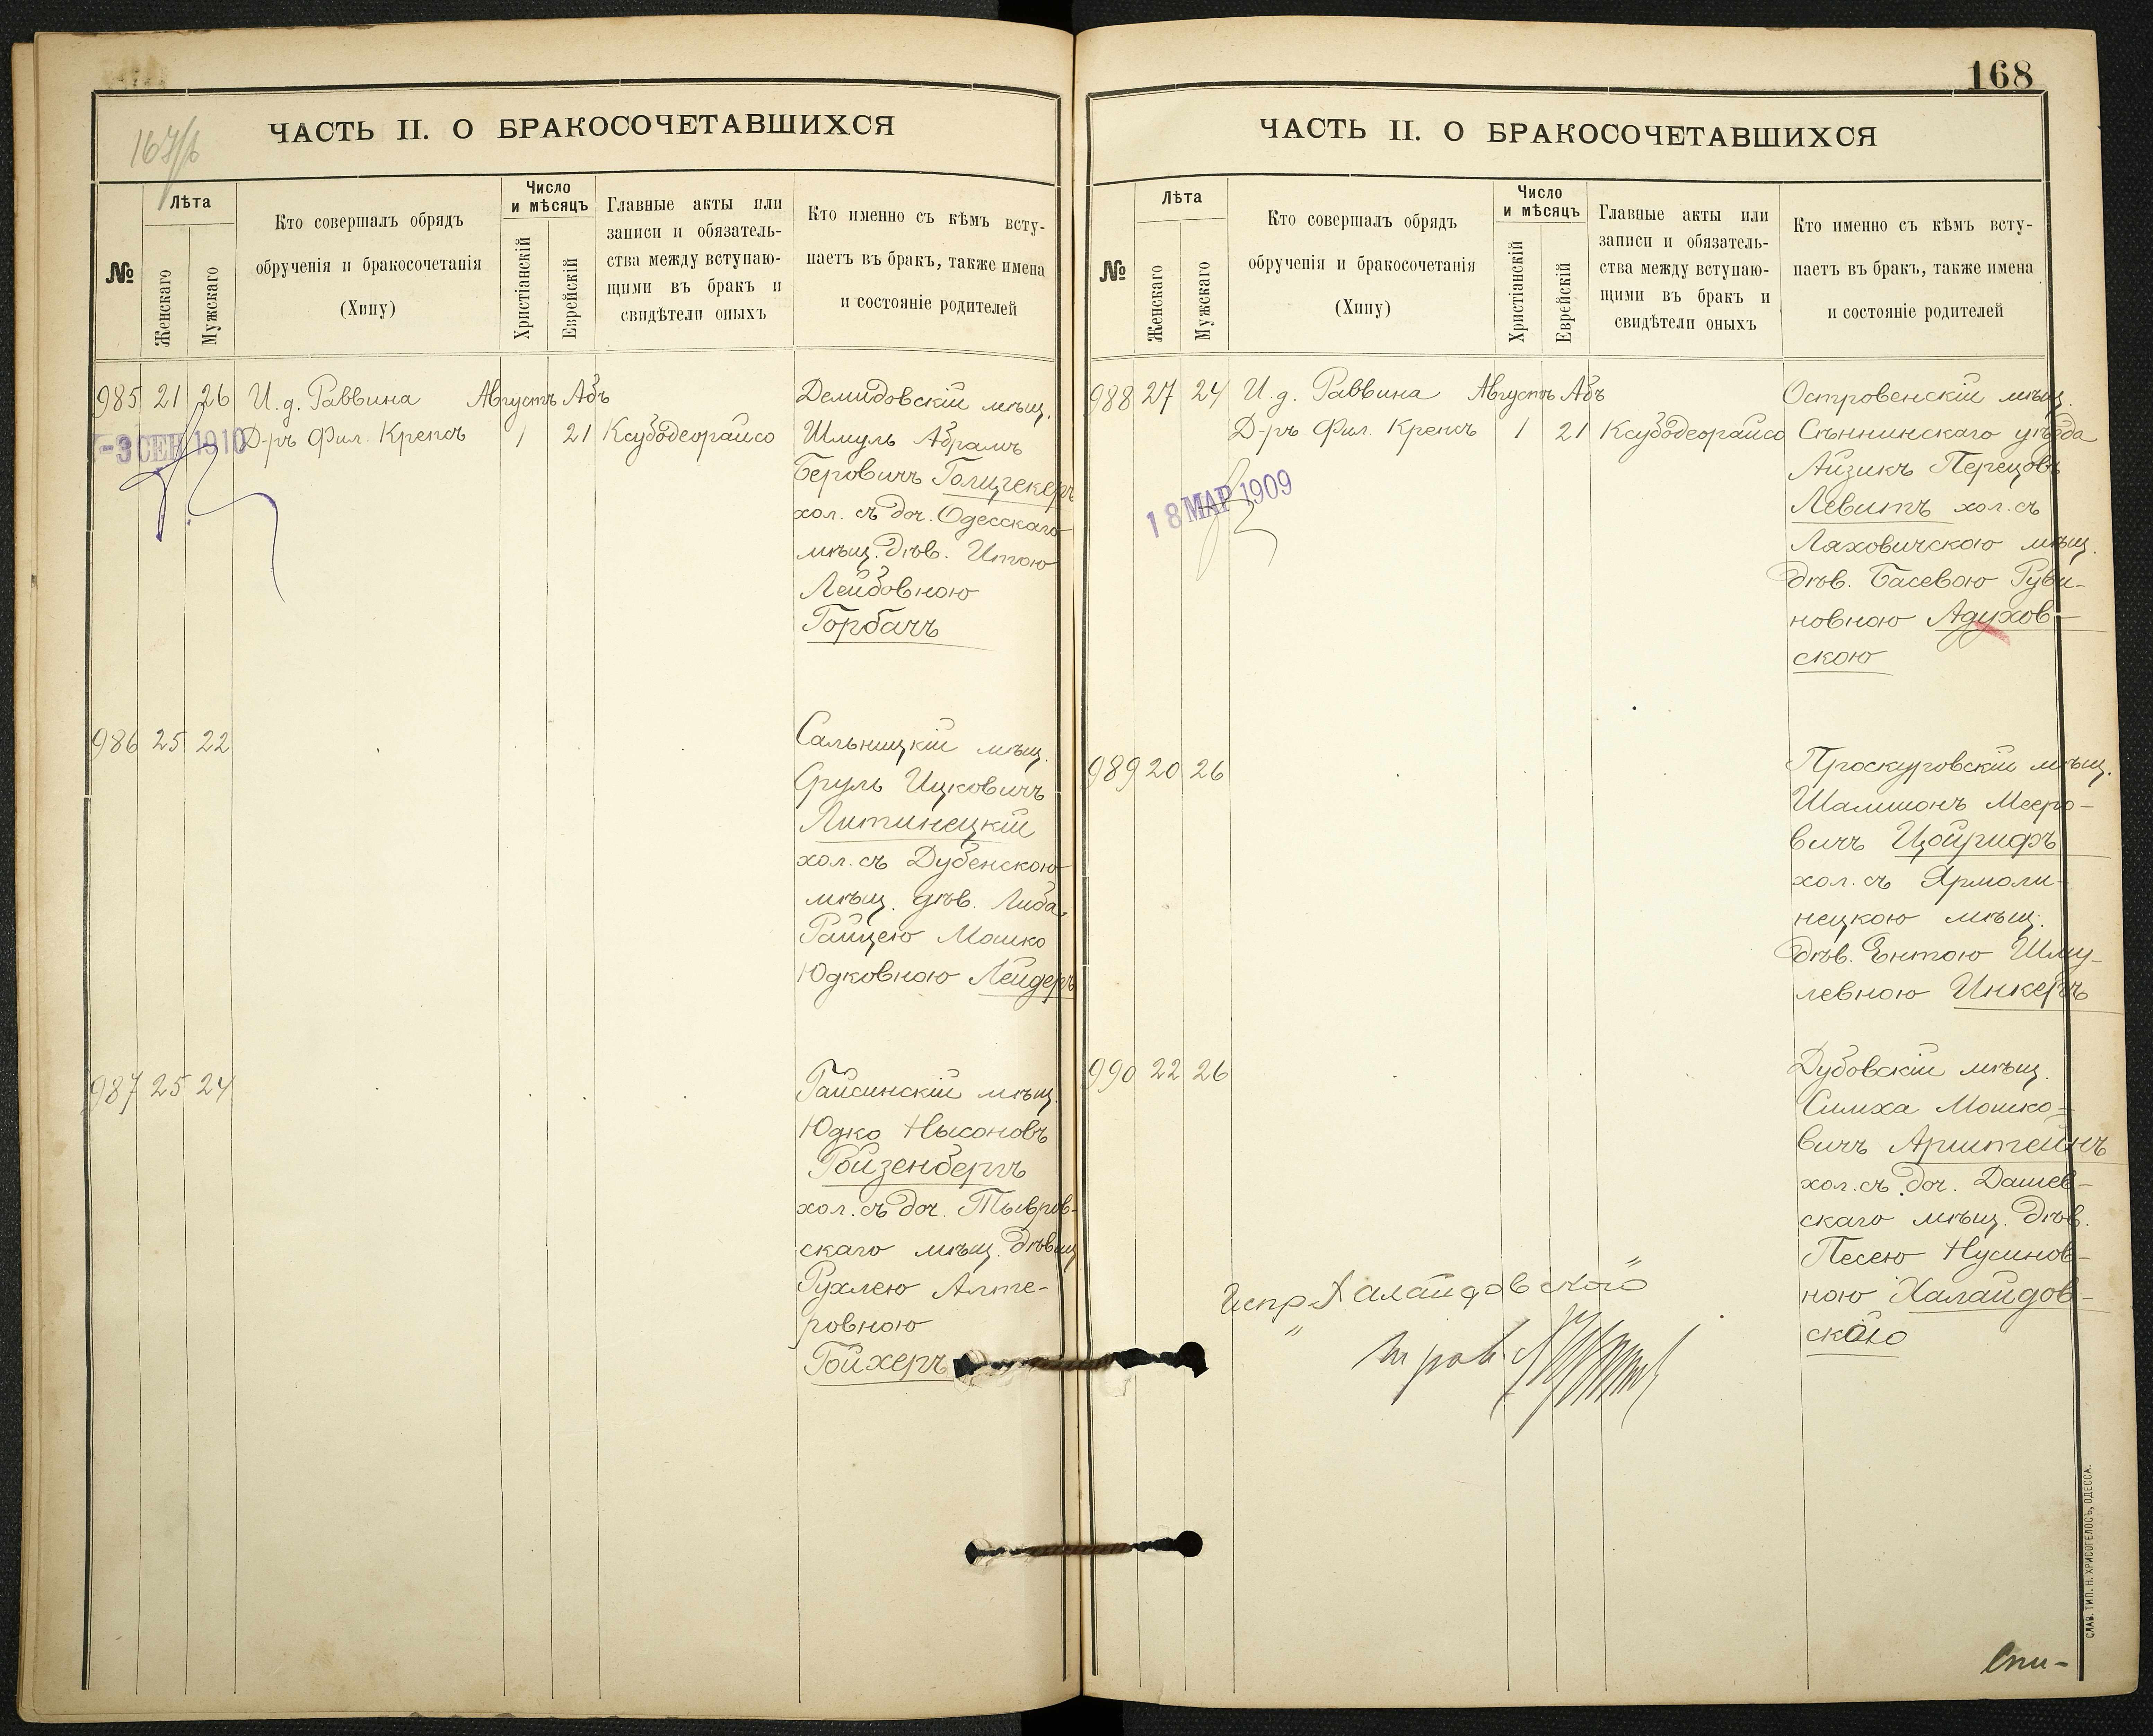 167/б
ЧАСТЬ II. О БРАКОСОЧЕТАВШИХСЯ
№
Лѣта
Женскаго
Мужскаго
Кто совершалъ обрядъ
обрученія и бракосочетанія
(Хипу)
Число
и мѣсяцъ
Христіанскій
Еврейскій
Главные акты или
записи и обязатель-
ства между вступаю-
щими въ бракъ и
свидѣтели оныхъ
Кто именно съ кѣмъ всту-
паетъ въ бракъ, также имена
и состояніе родителей
985 21 26 И. д. Раввина Августъ Абъ
Д-ръ Фил. Крепсъ 1 21 Ксубодеорайсо
-3 СЕН 1910
Демидовскій мѣщ.
Шмуль Абрамъ
Беровичъ Голцгекеръ
хол. съ доч. Одесскаго
мѣщ. дѣв. Итою
Лейбовною
Горбачъ
986 25 22
Сальницкій мѣщ.
Сруль Ицковичъ
Литинецкій
хол. съ Дубенскою
мѣщ. дѣв. Либа-
Райцею Мошко
Юдковною Лейдеръ
987 25 24
Гайсинскій мѣщ.
Юдко Нысоновъ
Ройзенбергъ
хол. съ доч. Тывров-
скаго мѣщ. дѣвиц
Рухлею Алте-
ровною
Гойхеръ
168
ЧАСТЬ II. О БРАКОСОЧЕТАВШИХСЯ
№
Лѣта
Женскаго
Мужскаго
Кто совершалъ обрядъ
обрученія и бракосочетанія
(Хипу)
Число
и мѣсяцъ
Христіанскій
Еврейскій
Главные акты или
записи и обязатель-
ства между вступаю-
щими въ бракъ и
свидѣтели оныхъ
Кто именно съ кѣмъ всту-
паетъ въ бракъ, также имена
и состояніе родителей
988 27 24 И. д. Раввина Августъ Абъ
Д-ръ Фил. Крепсъ 1 21 Ксубодеорайсо
18 МАР 1909
Островенскій мѣщ.
Сѣннинскаго уѣзда
Айзикъ Перецовъ
Левитъ хол. съ
Ляховичскою мѣщ.
дѣв. Басевою Руви-
новною Адуховъ-
скою
989 20 26
Проскуровскій мѣщ.
Шамшонъ Мееро-
вичъ Цойрифъ
хол. съ Ярмоли-
нецкою мѣщ.
дѣв. Ентою Шму-
левною Инкеръ
990 22 26
Дубовскій мѣщ.
Симха Мошко-
вичъ Арштейнъ
хол. съ доч. Дашев-
скаго мѣщ. дѣв.
Песею Нусинов-
ною Халайдов-
ской
Испр. „Халайдовской"
СЛАВ. ТИП. Н. ХРИСОГЕЛОСЪ, ОДЕССА.